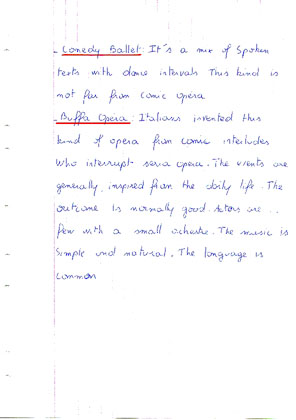 - Comedy Ballet: It's a mix of Spoken
texts with dance intervals This kind is
not far from comic opera
- Buffa Opera: Italians invented this
kind of opera from comic interludes
who interrupt seria opera. The events are
generally inspired from the daily life. The
outcome is normally good. Actors are..
few with a small ochestre. The music is
Simple and natural. The language is
common